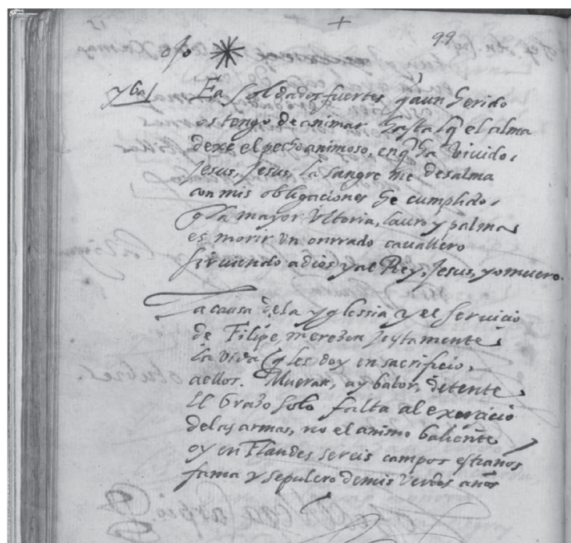 99
ojo
yba/ Ea soldados fuertes q aun herido
os tengo de animar hasta q el alma
dexe el pecho animoso, en q ha vivido.
Jesus, Jesus, la sangre me desalma
con mis obligaciones he cumplido.
q la mayor vitoria, lauro y palma
es morir un onrrado cavallero
sirviendo a dios y al Rey. Jesus, yo muero.
La causa de la yglessia y el servicio
de Filipe, merezca justamente
la vida q les doy en sacrificio,
a ellos. Mueran, ay balor, detente
El brazo solo falta al exercicio
de las armas, no el animo baliente
oy en Flandes sereis campos estraños
fama y sepulcro de mis verdes años